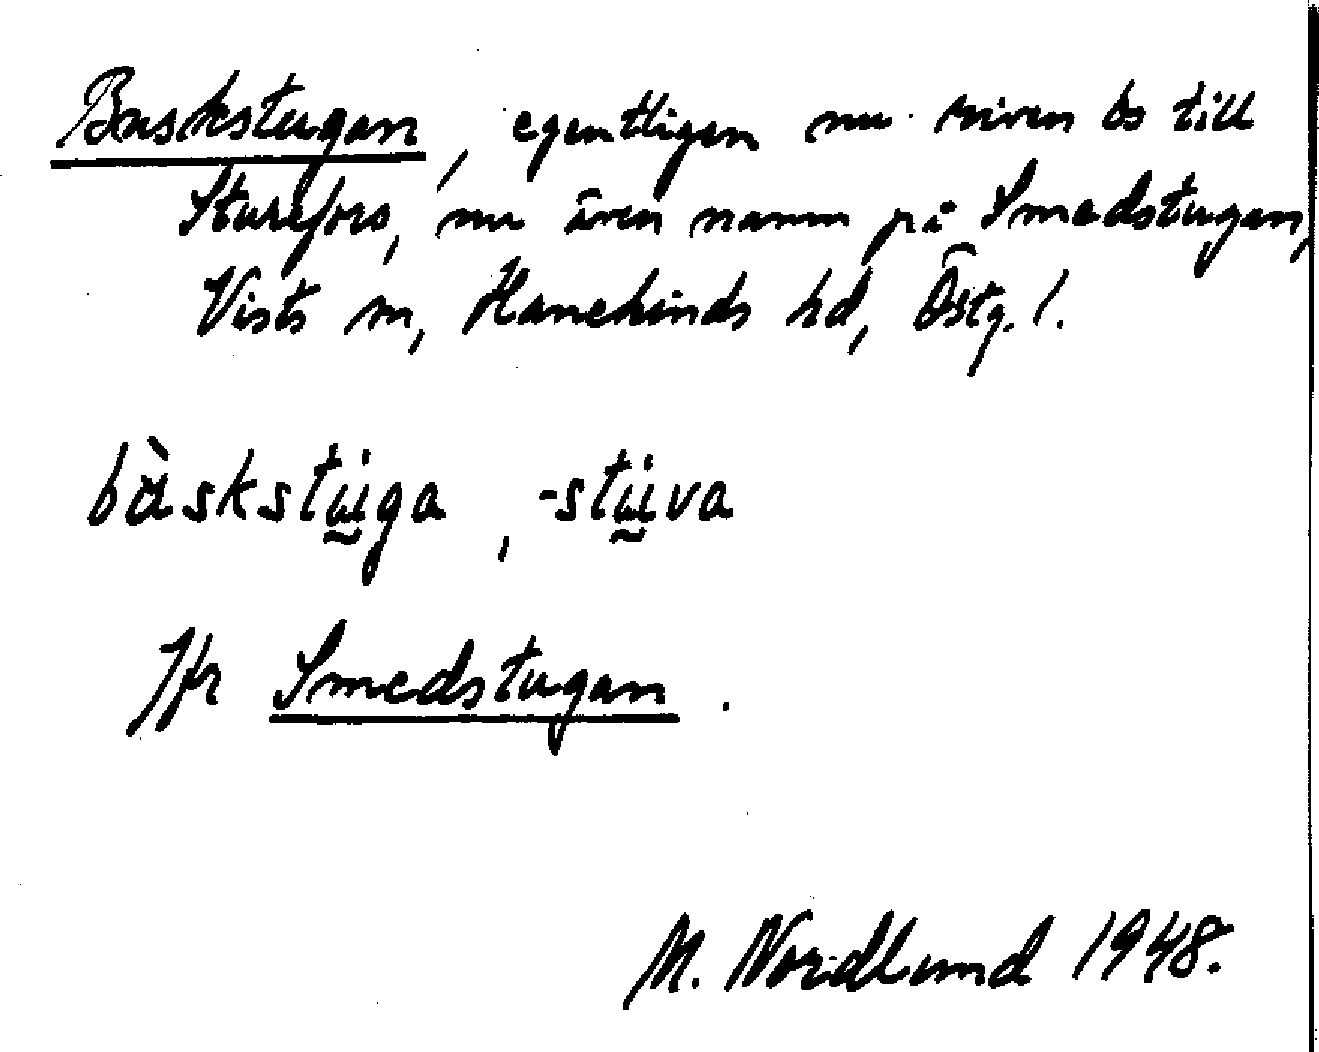 Baskstugan, egentligen nu riven bs till
Sturefors, nu även namn på Smedstugan,
Vists sn, Hanekinds hd, Östg. l.
bàskstu̮i̮ga, -stu̮i̮va
Jfr Smedstugan.
M. Nordlund 1948.